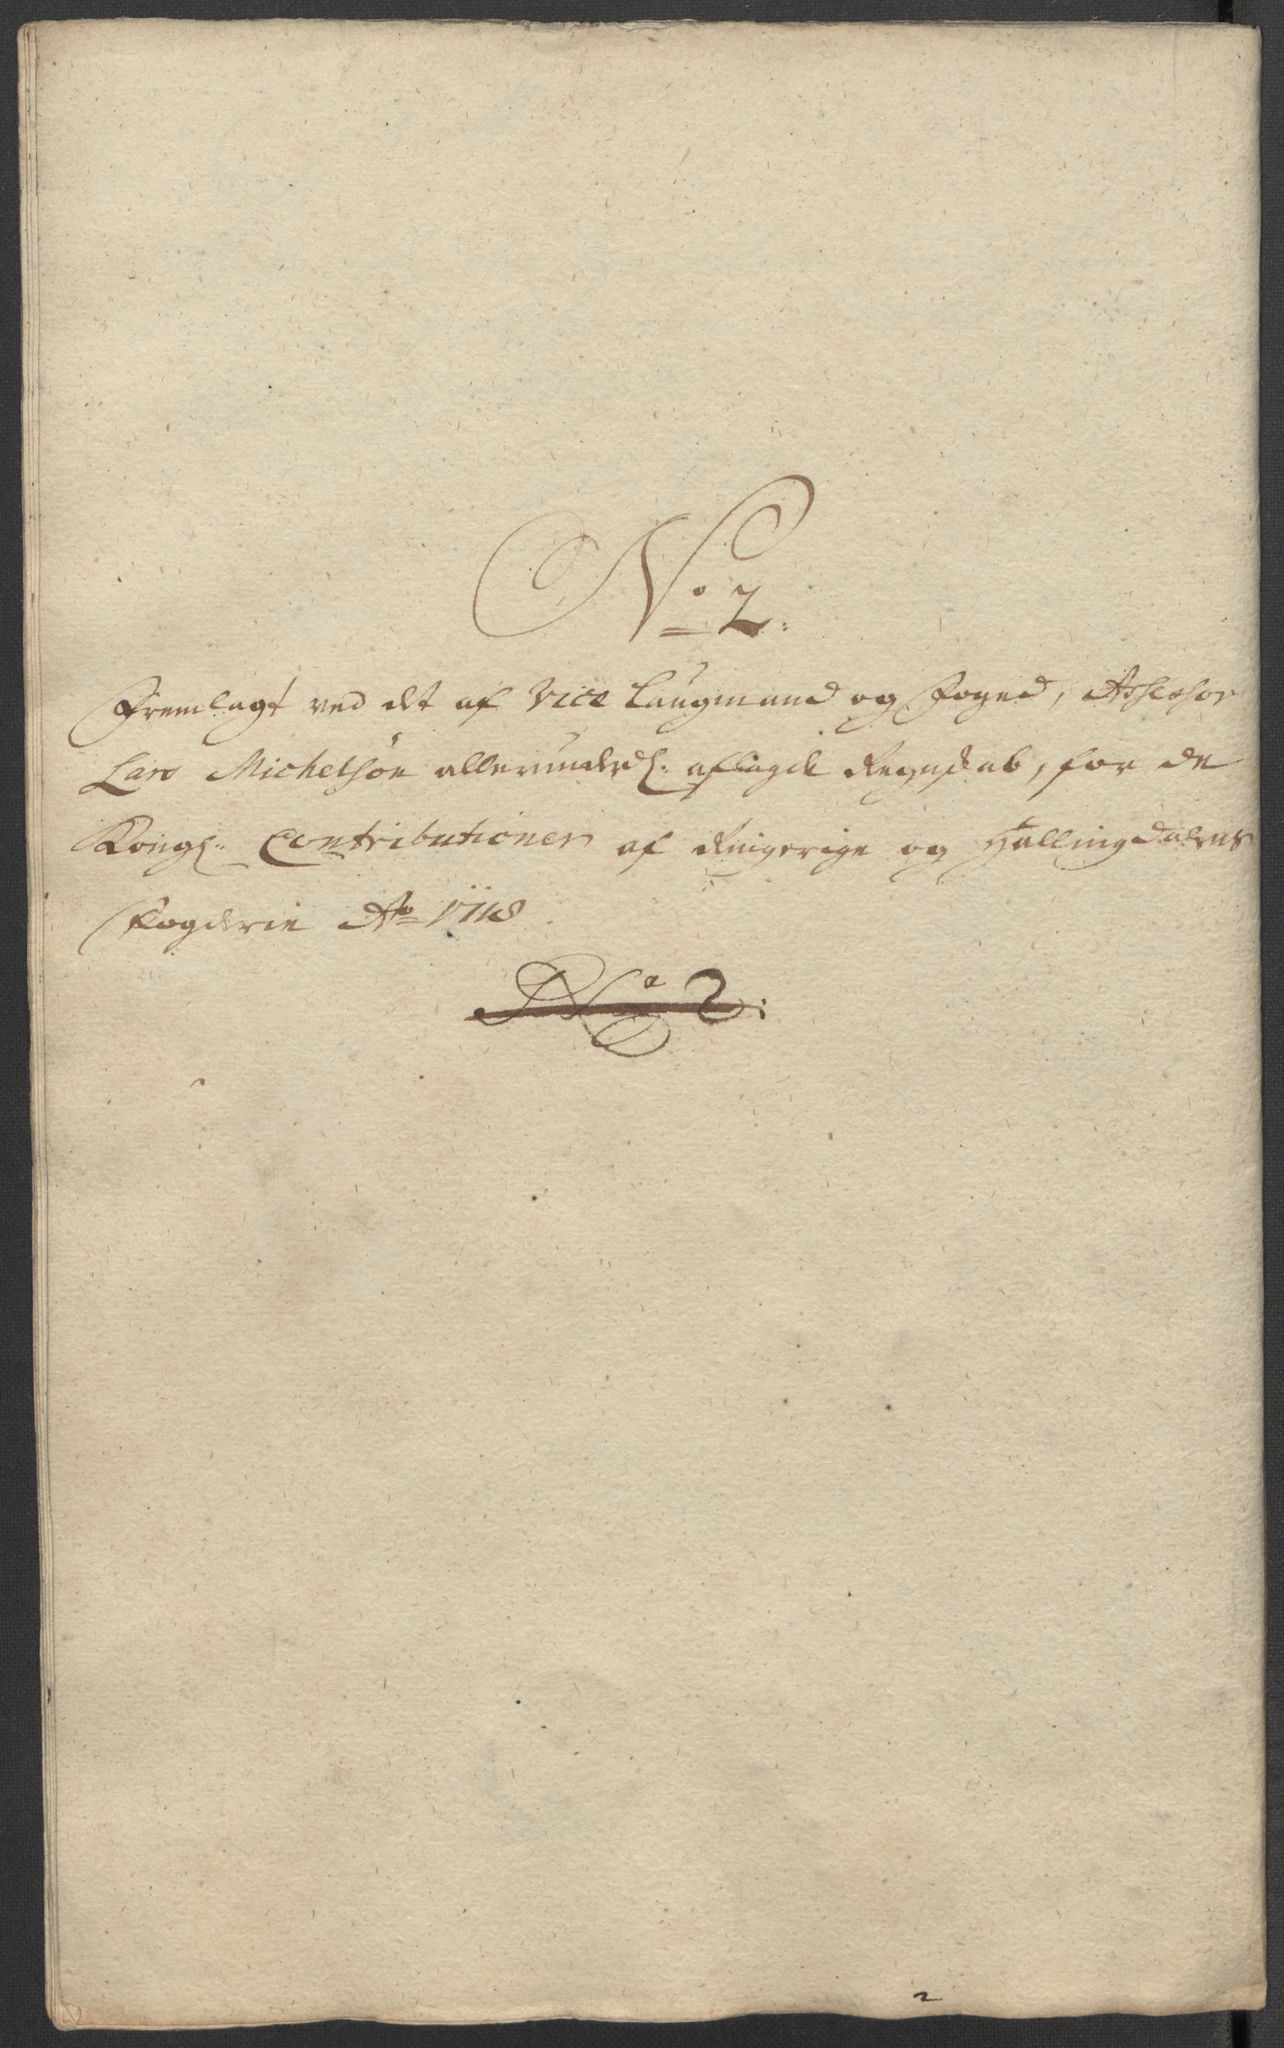 No 2:
Fremlagt ved det af Vice Laugmand og Foged, Assessor
Lars Michelsøn allerunderd: aflagde Regnskab, for de
Kongl: Contributioner af Ringerige og Hallingdalens
Fogderie Ao 1718.
No 2:
2